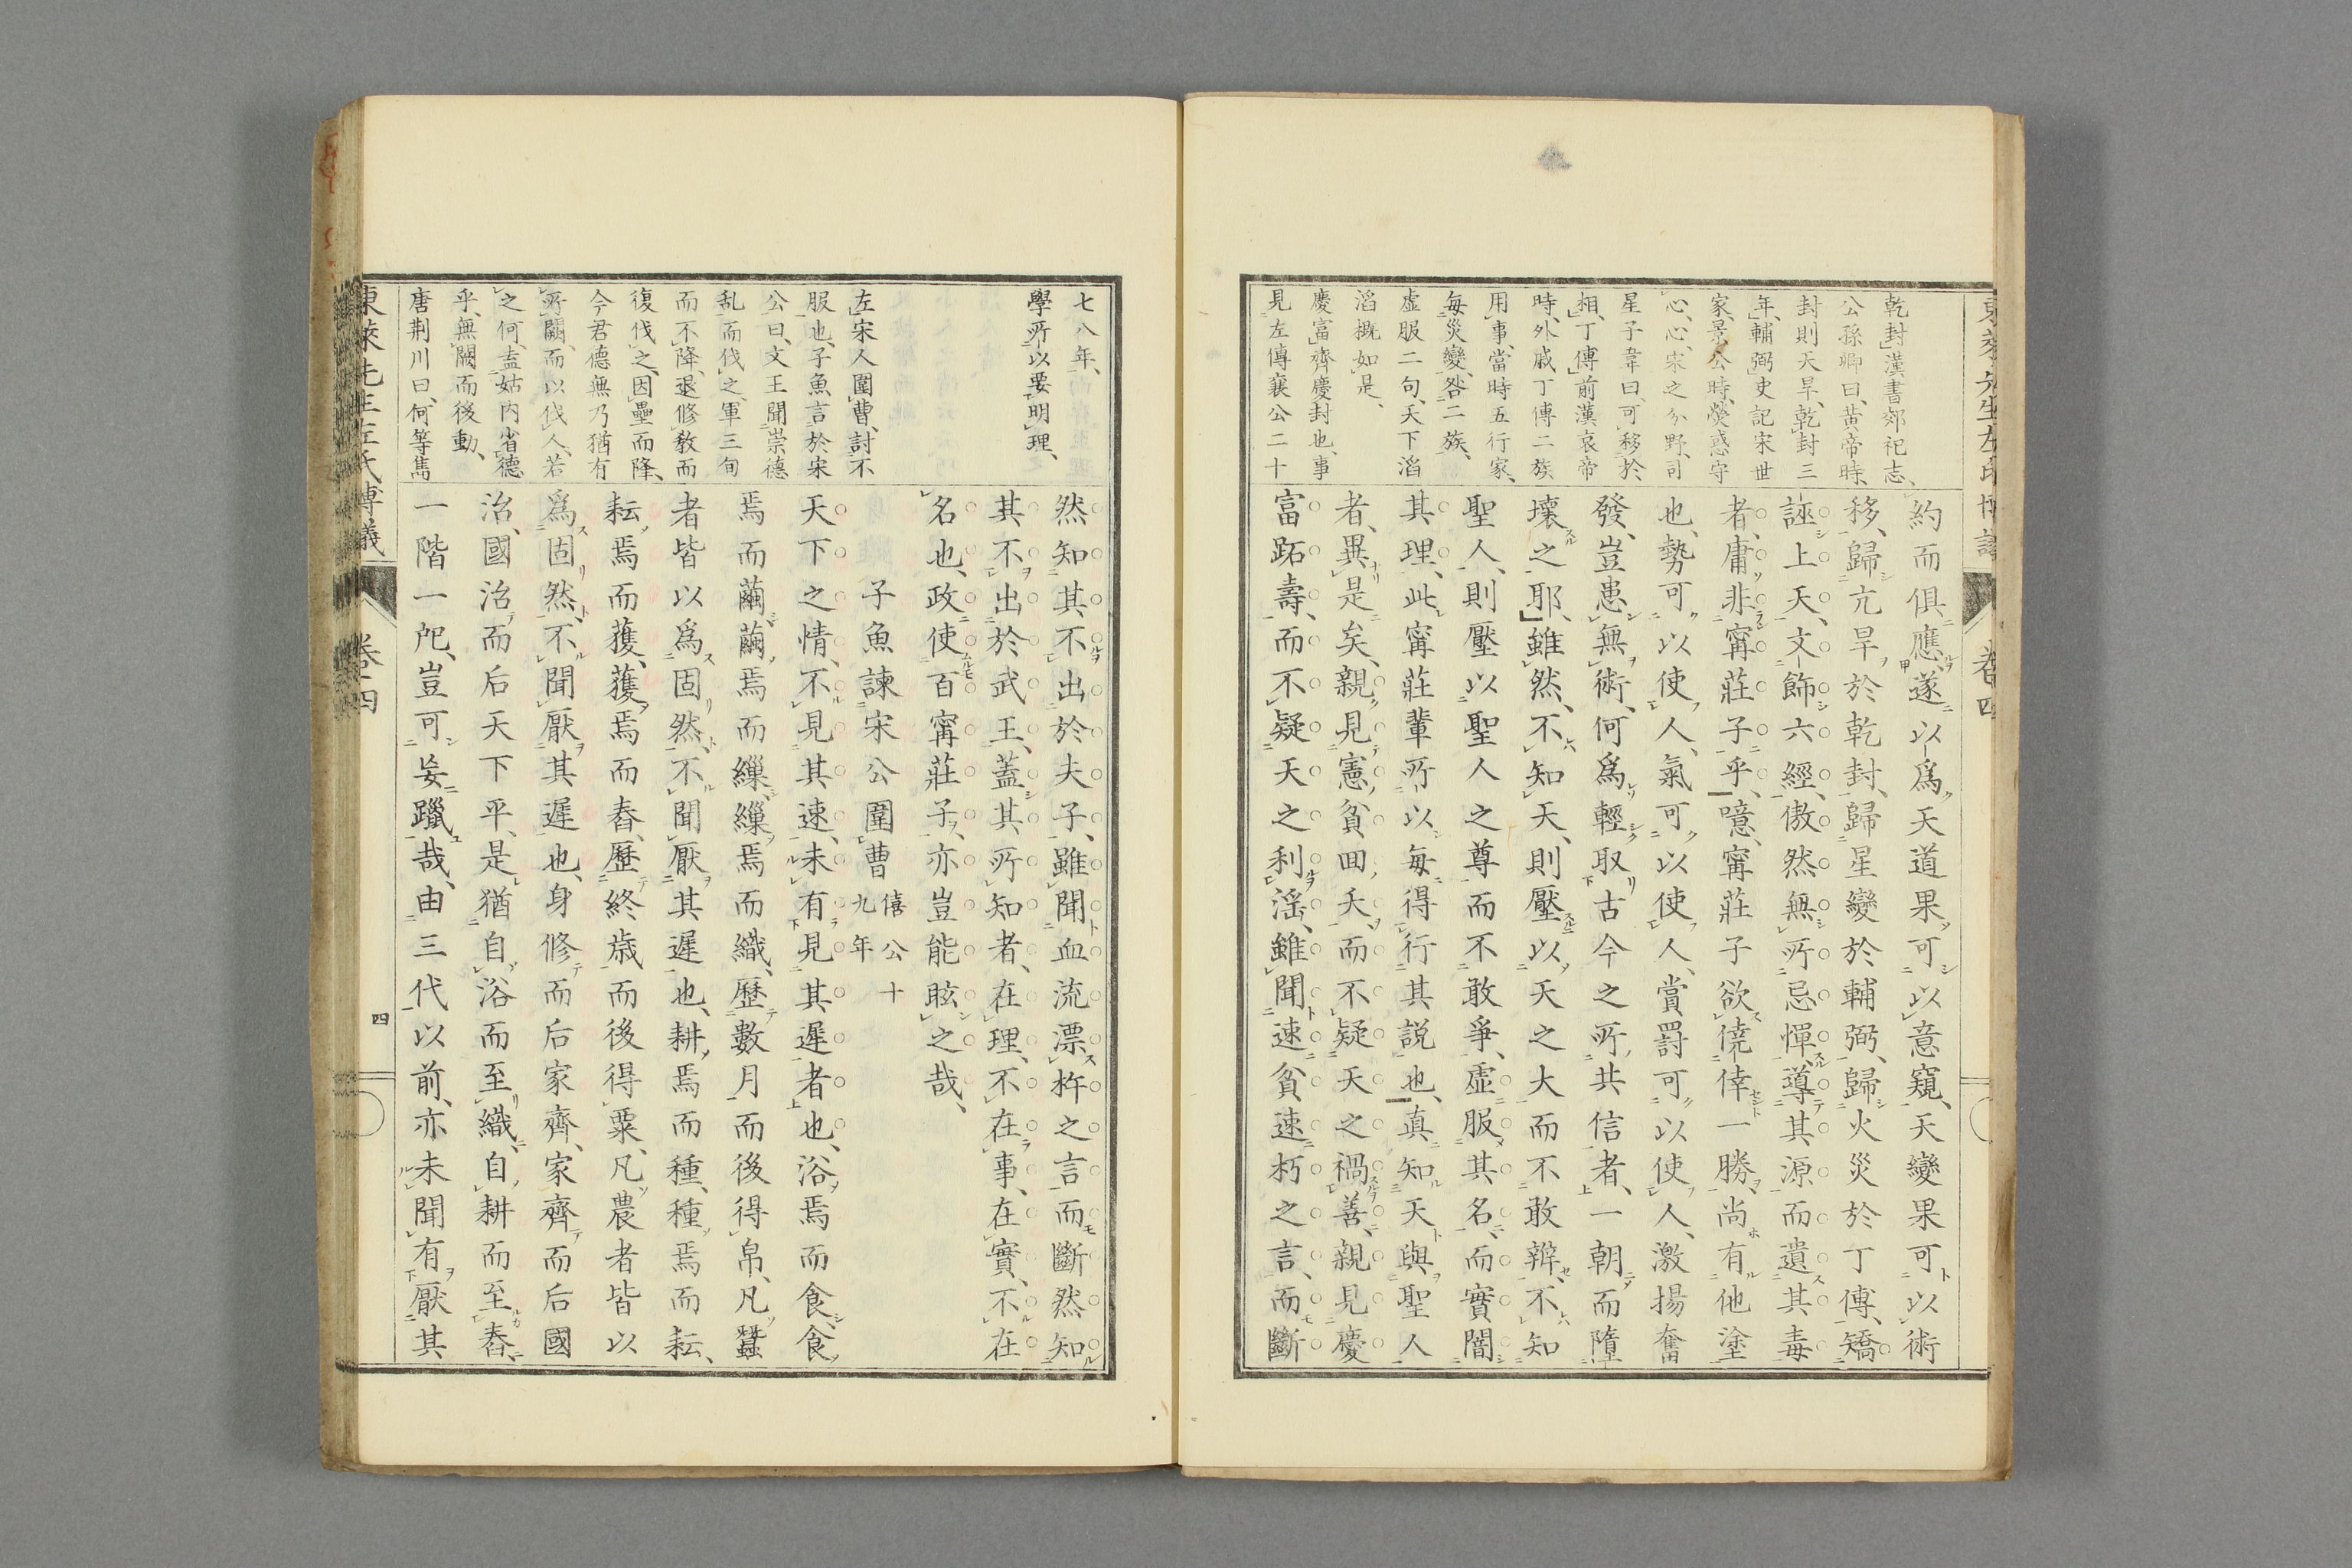 乾封漢書郊祀志、
公孫卿曰、黃帝時、
封則天旱、乾封三
年、輔弼史記宋世
家、景公時、熒惑守
心、心、宋之分野、司
星子韋曰、可移於
相、丁傅前漢哀帝
時、外戚丁傅二族
用事、當時五行家、
每災變、咎二族、
虛服二句、天下滔
滔概如是、
慶富齊慶封也、事
見左傳襄公二十
約而俱應、遂以爲天道果可以意窺、天變果可以術
移、歸亢旱於乾封、歸星變於輔弼、歸火災於丁傅、矯
誣上天、文飾六經、傲然無所忌憚、導其源而遺其毒
者、庸非甯莊子乎、噫、甯莊子欲僥倖一勝、尚有他塗
也、勢可以使人、氣可以使人、賞罰可以使人、激揚奮
發、豈患無術、何爲輕取古今之所共信者、一朝而隳
壞之耶、雖然、不知天、則壓以天之大而不敢辯、不知
聖人、則壓以聖人之尊而不敢爭、虛服其名、而實闇
其理、此甯莊輩所以每得行其説也、真知天與聖人
者、異是矣、親見憲貧回夭、而不疑天之禍善、親見慶
富跖壽、而不疑天之利淫、雖聞速貧速朽之言、而斷
東萊先生左氏博議 卷四 四
七八年、
學所以要明理、
左宋人圍曹、討不
服也、子魚言於宋
公曰、文王聞崇德
乱而伐之、軍三旬
而不降、退修敎而
復伐之、因壘而降、
今君德無乃猶有
所闕、而以伐人、若
之何、盍姑內省德
乎、無闕而後動、
唐荆川曰、何等雋
然知其不出於夫子、雖聞血流漂杵之言、而斷然知
其不出於武王、蓋其所知者、在理、不在事、在實、不在
名也、政使百甯莊子、亦豈能眩之哉、
子魚諫宋公圍曹 僖公十九年
天下之情、不見其速、未有見其遲者也、浴焉而食、食
焉而繭、繭焉而繅、繅焉而織、歷數月而後得帛、凡蠶
者皆以爲固然、不聞厭其遲也、耕焉而種、種焉而耘、
耘焉而穫、穫焉而舂、歷終歲而後得粟、凡農者皆以
爲固然、不聞厭其遲也、身修而后家齊、家齊而后國
治、國治而后天下平、是猶自浴而至織、自耕而至舂、
一階一戺、豈可妄躐哉、由三代以前、亦未聞有厭其